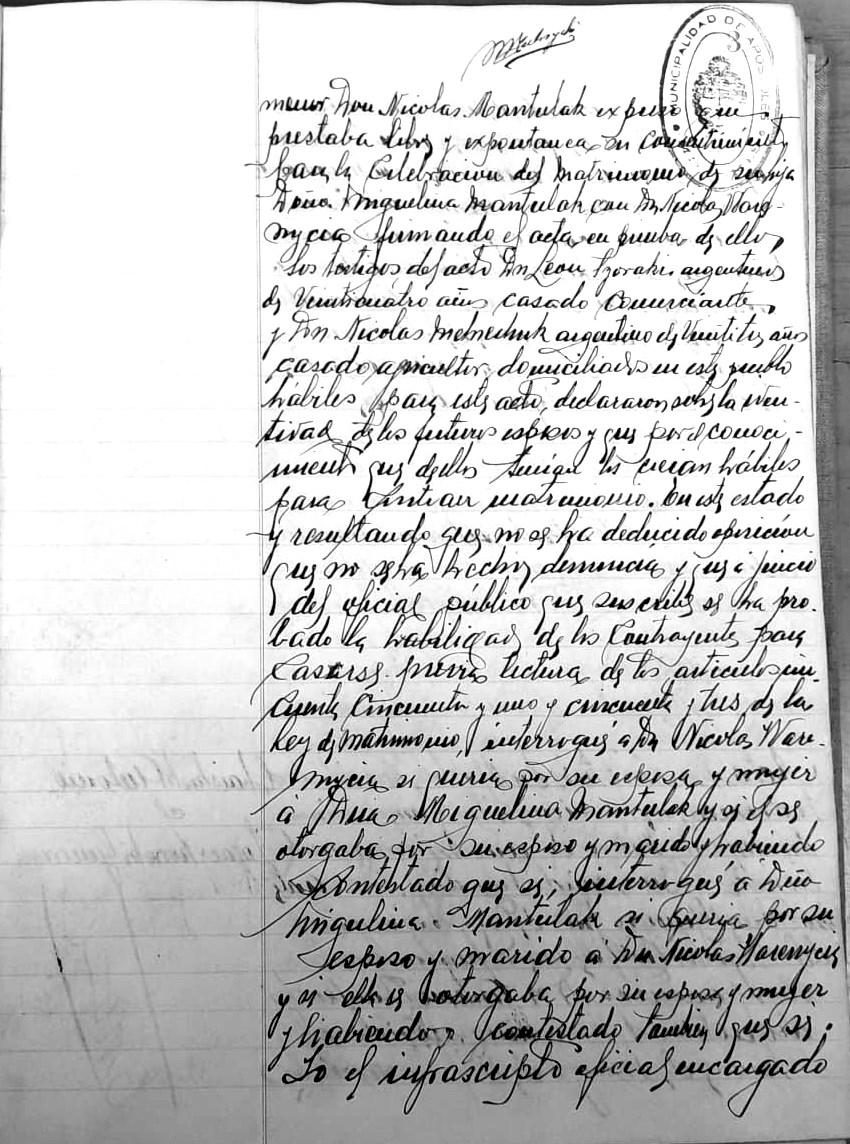 MUNICIPALIDAD DE APOSTOLES
3
menor Don Nicolas Mantulak expuso que
prestaba libre y expontanea su consentimiento
para la Celebracion del Matrimonio de su hija
Doña Miguelina Mantulak con Dn Nicolas Ware-
nycia firmando el acta en prueba de ello,
Los testigos del acto Dn Leon argentino
de Veinticuatro años casado Comerciante,
y Dn Nicolas Melnechuk argentino de Veintitres años
casado agricultor, domiciliados en este pueblo
hábiles para este acto, declararon sobre la iden-
tidad de los futuros esposos y que por el conoci-
miento que de ellos tenían los creian hábiles
para Contraer matrimonio. En este estado
y resultando que no se ha deducido oposición
que no se ha hecho denuncia y que á juicio
del oficial público que suscribe se ha pro-
bado la habilidad de los Contrayentes para
Casarse previa lectura de los articulos cin-
cuenta Cincuenta y uno y cincuenta y tres de la
Ley de Matrimonio, interrogué á Dn Nicolas Ware-
nycia si queria por su esposa y mujer
á Doña Miguelina Mantulak y si él se
otorgaba por su esposo y marido y habiendo
contestado que si, interrogué á Doña
Miguelina Mantulak si queria por su
esposo y marido á Dn Nicolas Warenycia
y si ella se otorgaba por su esposa y mujer
y habiendo contestado tambien que si.
Yo el infrascripto oficial encargado